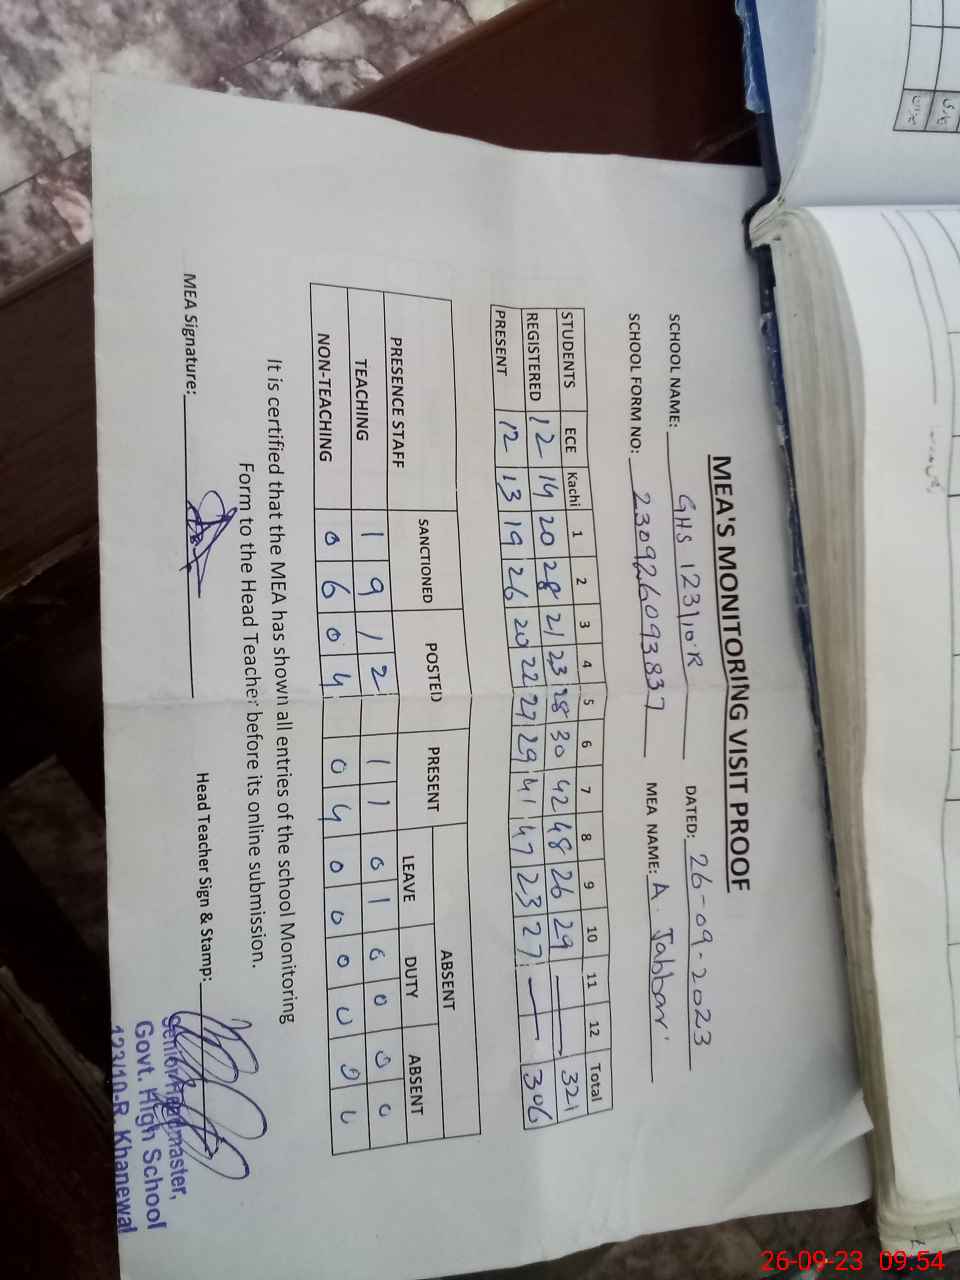 MEA'S MONITORING VISIT PROOF
SCHOOL NAME: GHS 123/10.R DATED: 26-09-2023
SCHOOL FORM NO: 230926093837 MEA NAME: A. Jabbar
STUDENTS ECE Kachi 1 2 3 4 5 6 7 8 9 10 11 12 Total
REGISTERED 12 14 20 28 21 23 28 30 42 48 26 29 — — 321
PRESENT 12 13 19 26 20 22 27 29 41 47 23 27 — — 306
PRESENCE STAFF SANCTIONED POSTED PRESENT ABSENT
LEAVE DUTY ABSENT
TEACHING 1 9 1 2 1 1 0 1 0 0 0 0
NON-TEACHING 0 6 0 4 0 4 0 0 0 0 0 0
It is certified that the MEA has shown all entries of the school Monitoring
Form to the Head Teacher before its online submission.
MEA Signature: Head Teacher Sign & Stamp:
Senior Headmaster,
Govt. High School
123/10-R. Khanewal
26-09-23 09.54